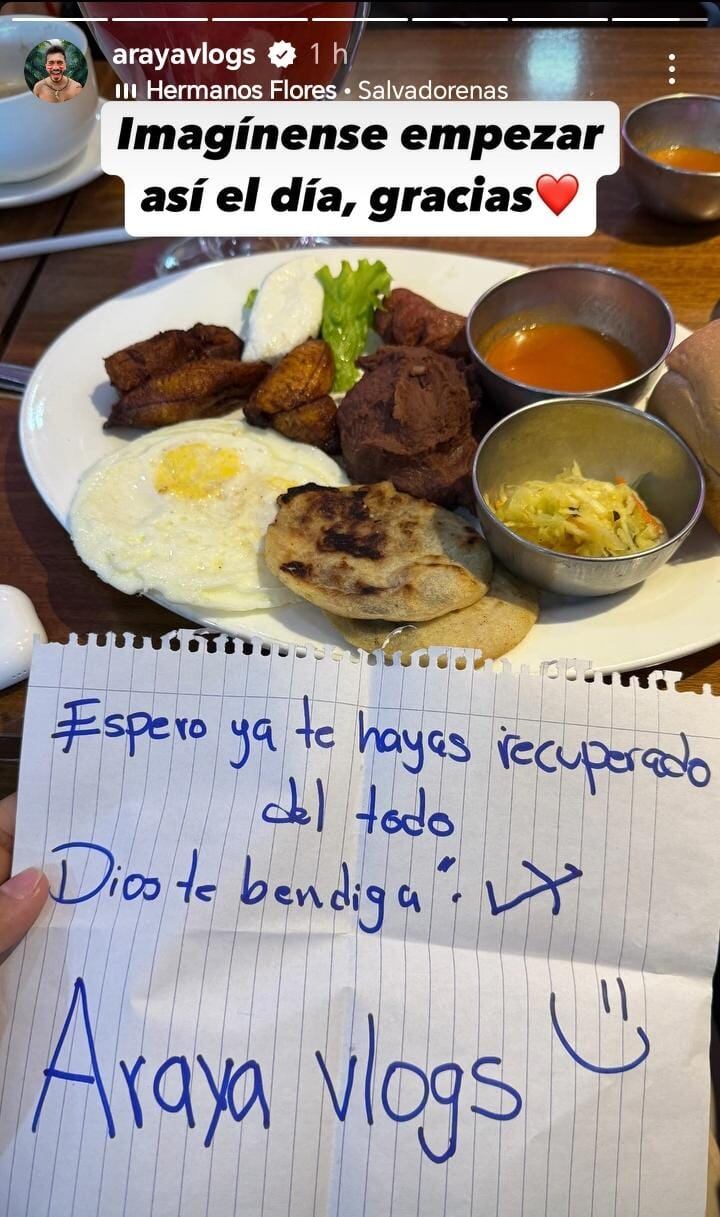 arayavlogs 1 h
Hermanos Flores • Salvadorenas
Imagínense empezar
así el día, gracias❤️
Espero ya te hayas recuperado
del todo
Dios te bendiga".
Araya vlogs